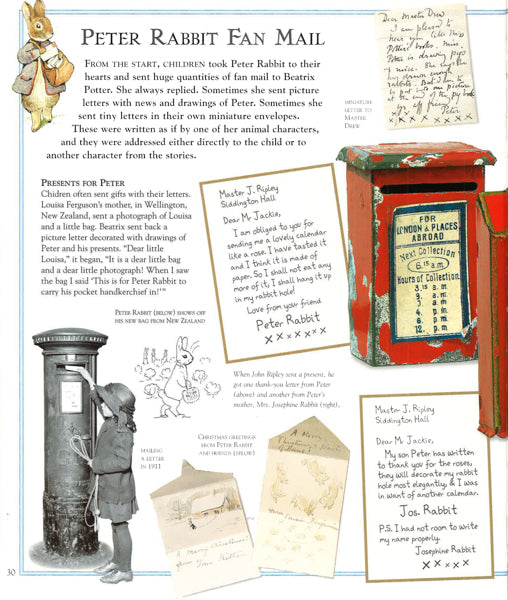 PETER RABBIT FAN MAIL
FROM THE START, CHILDREN took Peter Rabbit to their
hearts and sent huge quantities of fan mail to Beatrix
Potter. She always replied. Sometimes she sent picture
letters with news and drawings of Peter. Sometimes she
sent tiny letters in their own miniature envelopes.
These were written as if by one of her animal characters,
and they were addressed either directly to the child or to
another character from the stories.
Dear Master Drew
I am pleased to
hear you like Miss
Potter's books. Miss
Potter is drawing pigs
& mice. She says she
has drawn enough
rabbits. But I am to
be put into one picture
at the end of the pig book
yr aff friend
Peter
x x x x x x
MINIATURE
LETTER TO
MASTER
DREW
PRESENTS FOR PETER
Chidren often sent gifts with their letters.
Louisa Ferguson's mother, in Wellington,
New Zealand, sent a photograph of Louisa
and a little bag. Beatrix sent back a
picture letter decorated with drawings of
Peter and his presents. "Dear little
Louisa," it began, "It is a dear little bag
and a dear little photograph! When I saw
the bag I said 'This is for Peter Rabbit to
carry his pocket handkerchief in!'"
PETER RABBIT (BELOW) SHOWS OFF
HIS NEW BAG FROM NEW ZEALAND
Master J. Ripley
Siddington Hall
Dear Mr Jackie,
I am obliged to you for
sending me a lovely calendar
like a rose. I have tasted it
and I think it is made of
paper. So I shall not eat any
more of it, I shall hang it up
in my rabbit hole!
Love from your friend
Peter Rabbit
x x x x x x x
FOR
LONDON & PLACES
ABROAD
Next Collection
6.15 a.m.
Hours of Collection
3.15 a.m.
9. a.m.
3. a.m.
4. p.m.
6. p.m.
8. p.m.
12. p.m.
When John Ripley sent a present, he
got one thank-you letter from Peter
(above) and another from Peter's
mother, Mrs. Josephine Rabbit (right).
MAILING
A LETTER
IN 1911
CHRISTMAS GREETINGS
FROM PETER RABBIT
AND FRIENDS (BELOW)
A Merry Christmas!
from Tom Kitten
A Merry
Master J. Ripley
Siddington Hall
Dear Mr Jackie,
My son Peter has written
to thank you for the roses,
they will decorate my rabbit
hole most elegantly, & I was
in want of another calendar.
Jos. Rabbit
P.S. I had not room to write
my name properly.
Josephine Rabbit
x x x x x
30